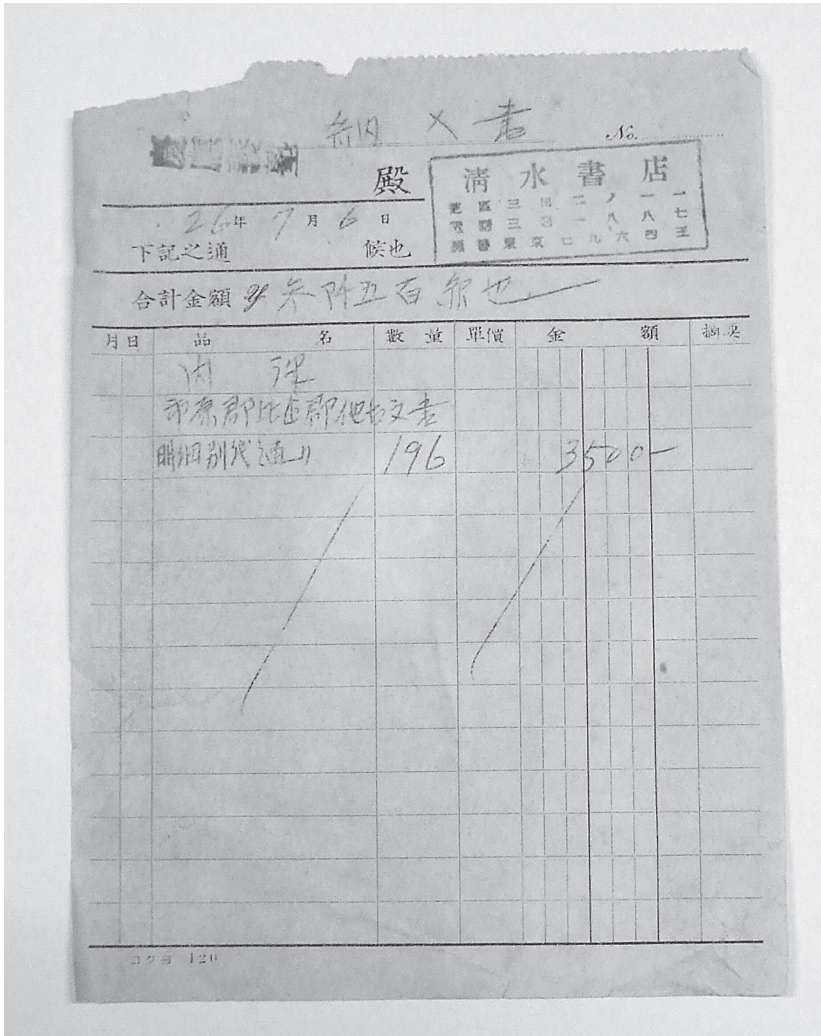 納入書 No.
殿
清水書店
芝區三田二ノ一一
電話三田一八八七
振替東京七九六四五
26年7月6日
下記之通 候也
合計金額 参阡五百 也
月日 品名 數量 單價 金額 摘要
内 訳
郡比企郡他古文書
明細別 通リ 196 3500-
コクヨ 120